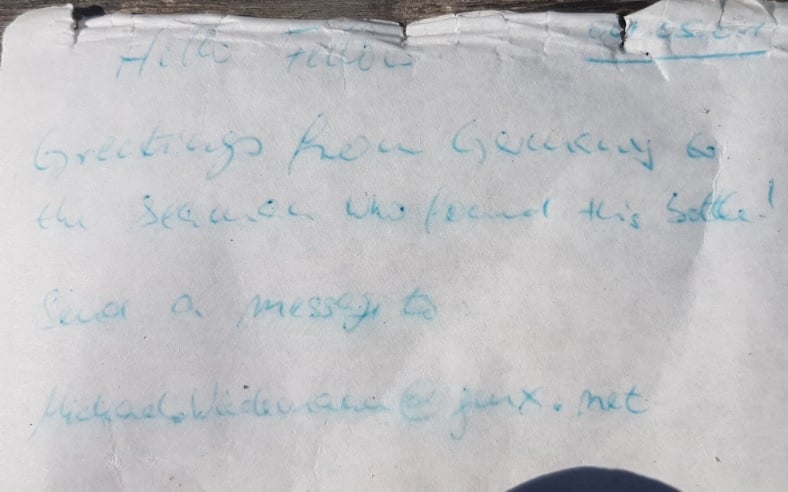 Hello Fellow
Greetings from Germany to
the Seaman who found this bottle!
Send a message to
@gmx.net